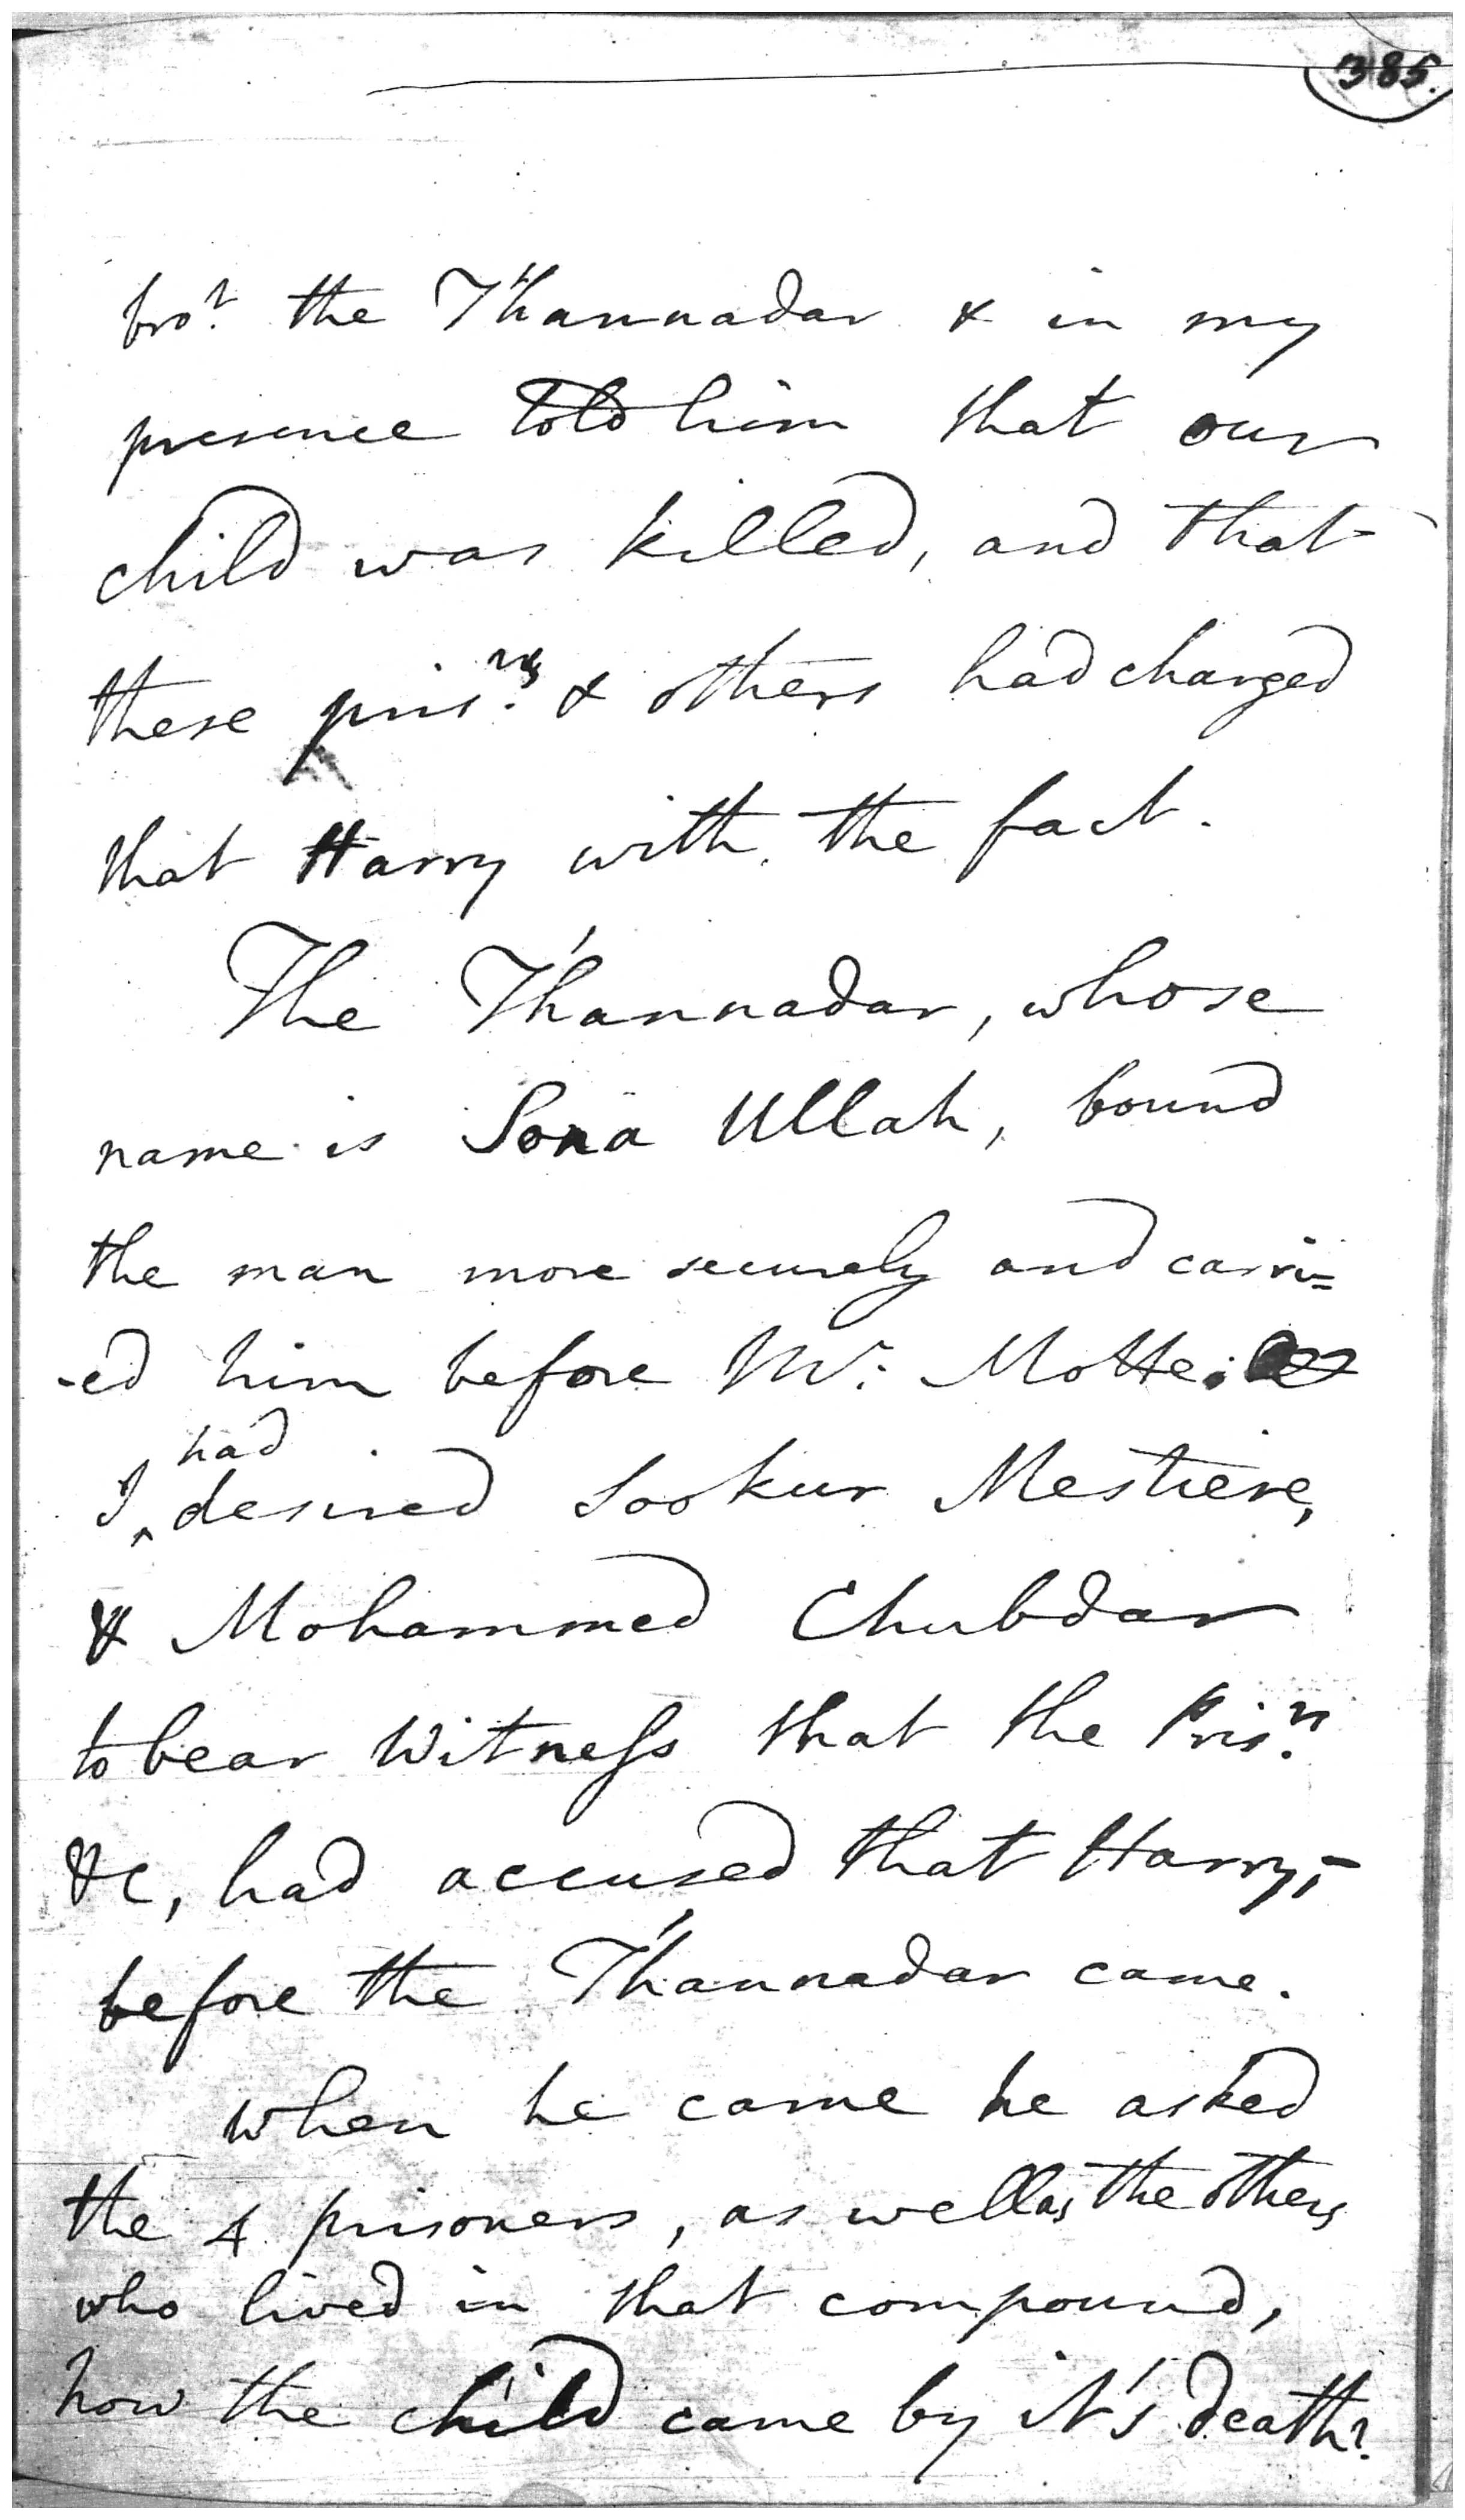 385.
bro.t the T'hannadar & in my
presence told him that our
child was killed, and that
these pris.rs & others had charged
that Harry with the fact.
The T'hannadar, whose
name is Sona Ullah, bound
the man more securely and carri=
-ed him before Mr: Motte.
I ^had desired Sookur Mestiere,
& Mohammed Chubdar
to bear Witneſs that the Pris.rs
&c, had accused that Harry,-
before the T'hannadar came.
when he came he asked
the 4 prisoners, as well as the others
who lived in that compound,
how the child came by it's death?